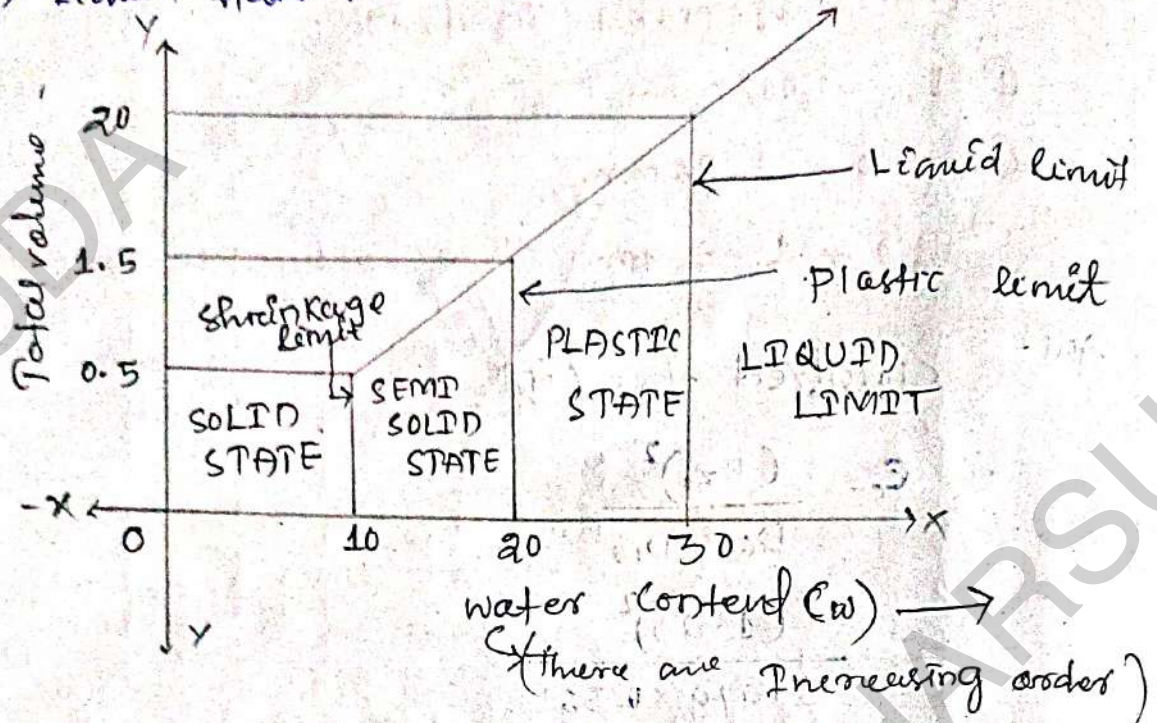 Y
Total volume -
20
1.5
0.5
Liquid limit
Plastic limit
Shrinkage
limit
SOLID
STATE
SEMI
SOLID
STATE
PLASTIC
STATE
LIQUID
LIMIT
-X
0
10
20
30
X
Y
water contend (w)
(there are Increasing order)
UDA
HARSU